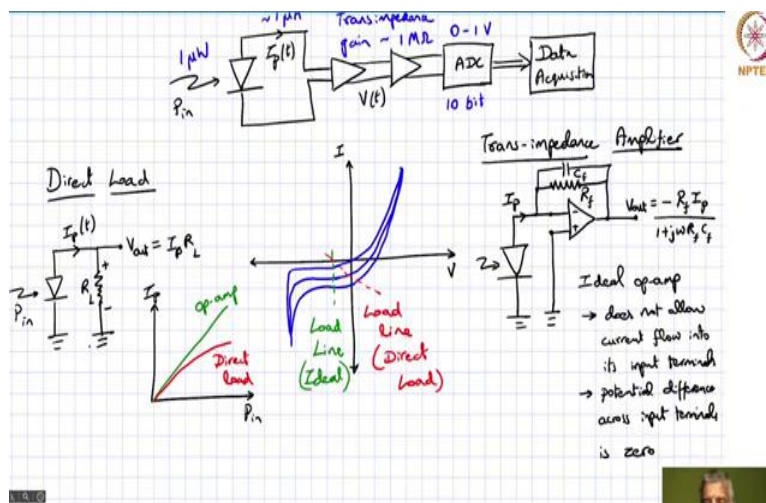 1 μW
P_in
~1 μA
I_p(t)
Transimpedance
gain ~ 1 MΩ
V(t)
0-1V
ADC
10 bit
Data
Acquistion
NPTE
Direct Load
I_p(t)
V_out = I_p R_L
R_L
+
-
P_in
I_p
op-amp
Direct
load
P_in
I
V
Load
Line
(Ideal)
Load
line
(Direct
Load)
Trans-impedance Amplifier
C_f
R_f
I_p
-
+
V_out = -R_f I_p
1+jωR_f C_f
Ideal op-amp
→ does not allow
current flow into
its input terminals
→ potential difference
across input terminals
is zero